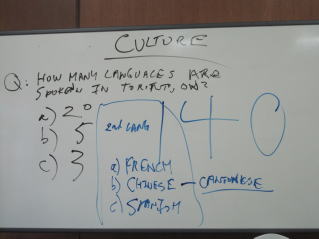 CULTURE
Q: HOW MANY LANGUAGES ARE
SPOKEN IN TORONTO, ON?
a) 20
b) 5
c) 3
140
2nd LANG
a) FRENCH
b) CHINESE — CANTONESE
c) SPANISH